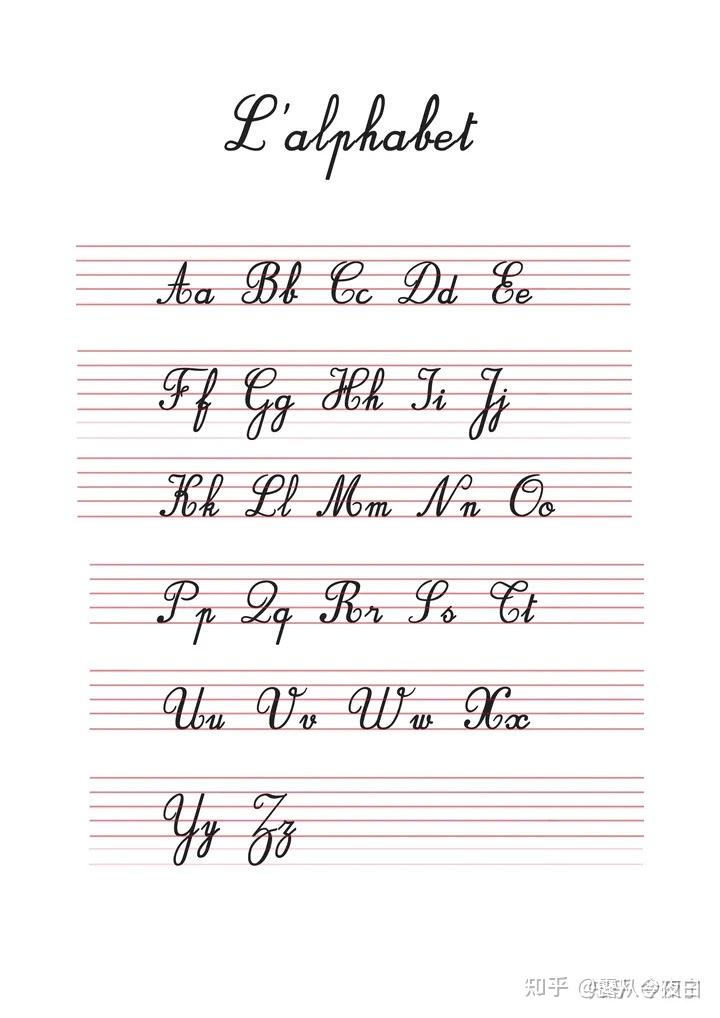 L'alphabet
Aa Bb Cc Dd Ee
Ff Gg Hh Ii Jj
Kk Ll Mm Nn Oo
Pp Qq Rr Ss Tt
Uu Vv Ww Xx
Yy Zz
知乎 @露从今夜白